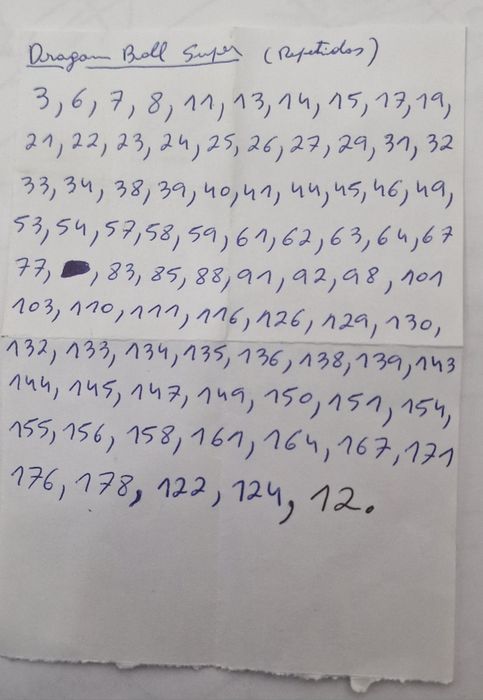 Dragon Ball Super (Repetidos)
3, 6, 7, 8, 11, 13, 14, 15, 17, 19,
21, 22, 23, 24, 25, 26, 27, 29, 31, 32
33, 34, 38, 39, 40, 41, 44, 45, 46, 49,
53, 54, 57, 58, 59, 61, 62, 63, 64, 67
77, , 83, 85, 88, 91, 92, 98, 101
103, 110, 111, 116, 126, 129, 130,
132, 133, 134, 135, 136, 138, 139, 143
144, 145, 147, 149, 150, 151, 154,
155, 156, 158, 161, 164, 167, 171
176, 178, 122, 124, 12.